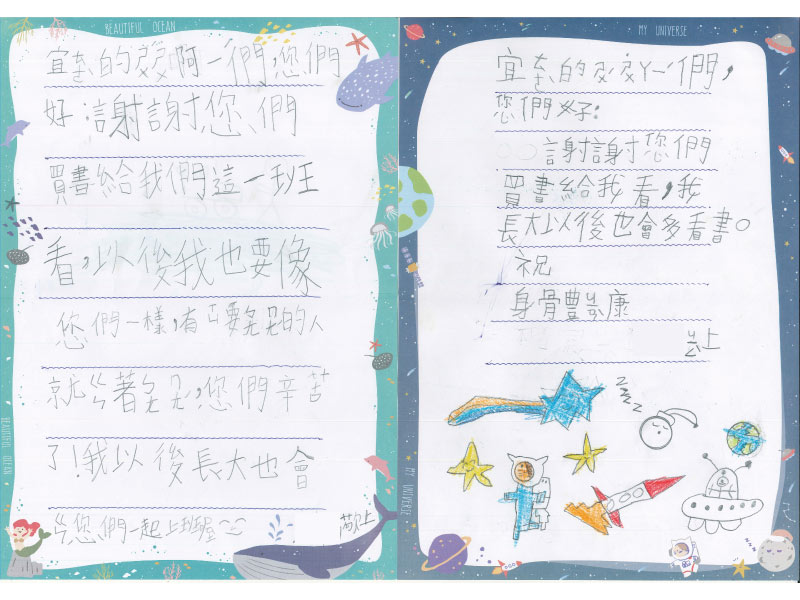 BEAUTIFUL OCEAN
宜 的 啊一們,您們
好:謝謝您們
買書給我們這一班
看,以後我也要像
您們一樣,有 要 的人
就ㄍ 著 ,您們辛苦
了!我以後長大也會
ㄍ 您們一起上班喔
敬上
BEAUTIFUL OCEAN
MY UNIVERSE
宜 的 ㄚ 們,
您們好:
謝謝您們
買書給我看,我
長大以後也會多看書。
祝
身 豐 康
上
z z z z
MY UNIVERSE